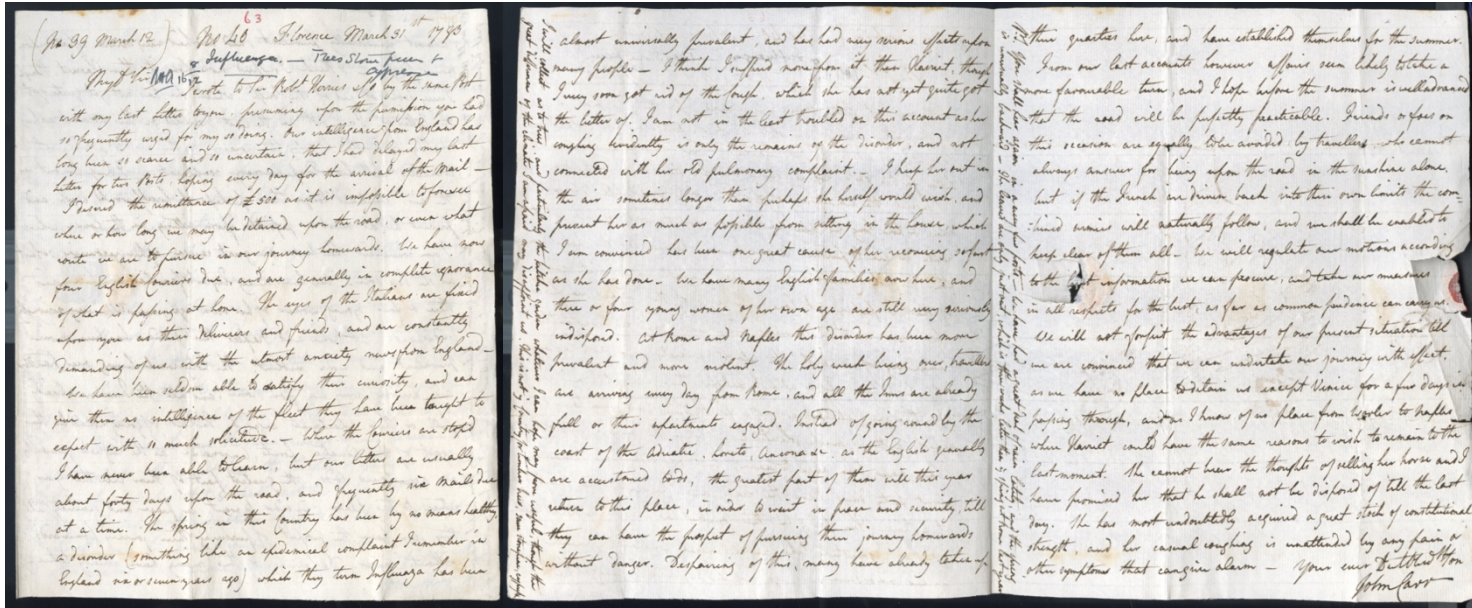 63
(No 39 March 12) No 40 Florence March 31st 1793
Influenza. — Trees Slow
I wrote to Sir Robt Herries & Co by the same Post
with my last letter to you, presuming upon the permission you had
so frequently urged for my so doing. Our intelligence from England has
long been so scarce and so uncertain, that I had delayed my last
letter for two Posts, hoping every day for the arrival of the Mail —
I desired the remittance of £500 as it is impossible to foresee
where or how long we may be detained upon the road, or even what
route we are to pursue in our journey homewards. We have now
four English Couriers due, and are generally in complete ignorance
of what is passing at home. The eyes of the Italians are fixed
upon you as their deliverers and friends, and are constantly
demanding of us with the utmost anxiety news from England —
We have been seldom able to satisfy their curiosity, and can
give them no intelligence of the fleet they have been taught to
expect with so much solicitude. — Where the Couriers are stoped
I have never been able to learn, but our letters are usually
about forty days upon the road, and frequently six Mails due
at a time. The spring in this Country has been by no means healthy,
a disorder (something like an epidemical complaint I remember in
England six or seven years ago) which they term Influenza has been
almost universally prevalent, and has had very serious effects upon
many people — I think I suffered more from it than Harriet, though
I very soon got rid of the Cough, which she has not yet quite got
the better of. I am not in the least troubled on this account as her
coughing evidently is only the remains of the disorder, and not
connected with her old pulmonary complaint. — I keep her out in
the air sometimes longer than perhaps she herself would wish, and
prevent her as much as possible from sitting in the house, which
I am convinced has been one great cause of her recovering so fast
as she has done. — We have many English families here, and
three or four young women of her own age are still very seriously
indisposed. At Rome and Naples this disorder has been more
prevalent and more violent. The holy week being over, travellers
are arriving every day from Rome, and all the Inns are already
full or their apartments engaged. Instead of going round by the
coast of the Adriatic, Loreto, Ancona &c. as the English generally
are accustomed to do, the greatest part of them will this year
return to this place, in order to wait in peace and security, till
they can have the prospect of pursuing their journey homewards
without danger. Despairing of this, many have already taken up
their quarters here, and have established themselves for the summer.
From our last accounts however affairs seem likely to take a
more favourable turn, and I hope before the summer is well advanced
that the road will be perfectly practicable. Friends or foes on
this occasion are equally to be avoided by travellers who cannot
always answer for being upon the road in the sunshine alone,
but if the French are driven back into their own limits the com=
bined armies will naturally follow, and we shall be enabled to
keep clear of them all — We will regulate our motions according
to the information we can procure, and take our measures
in all respects for the best, as far as common prudence can carry us.
We will not forfeit the advantages of our present situation till
we are convinced that we can undertake our journey with effect,
as we have no place to detain us except Venice for a few days in
passing through, and as I know of no place from to Naples
where Harriet could have the same reasons to wish to remain to the
last moment. She cannot bear the thoughts of selling her horse and I
have promised her that he shall not be disposed of till the last
day. She has most undoubtedly acquired a great stock of constitutional
strength, and her casual coughing is unattended by any pain or
other symptoms that can give alarm — Your ever Dutiful Son
John Carr